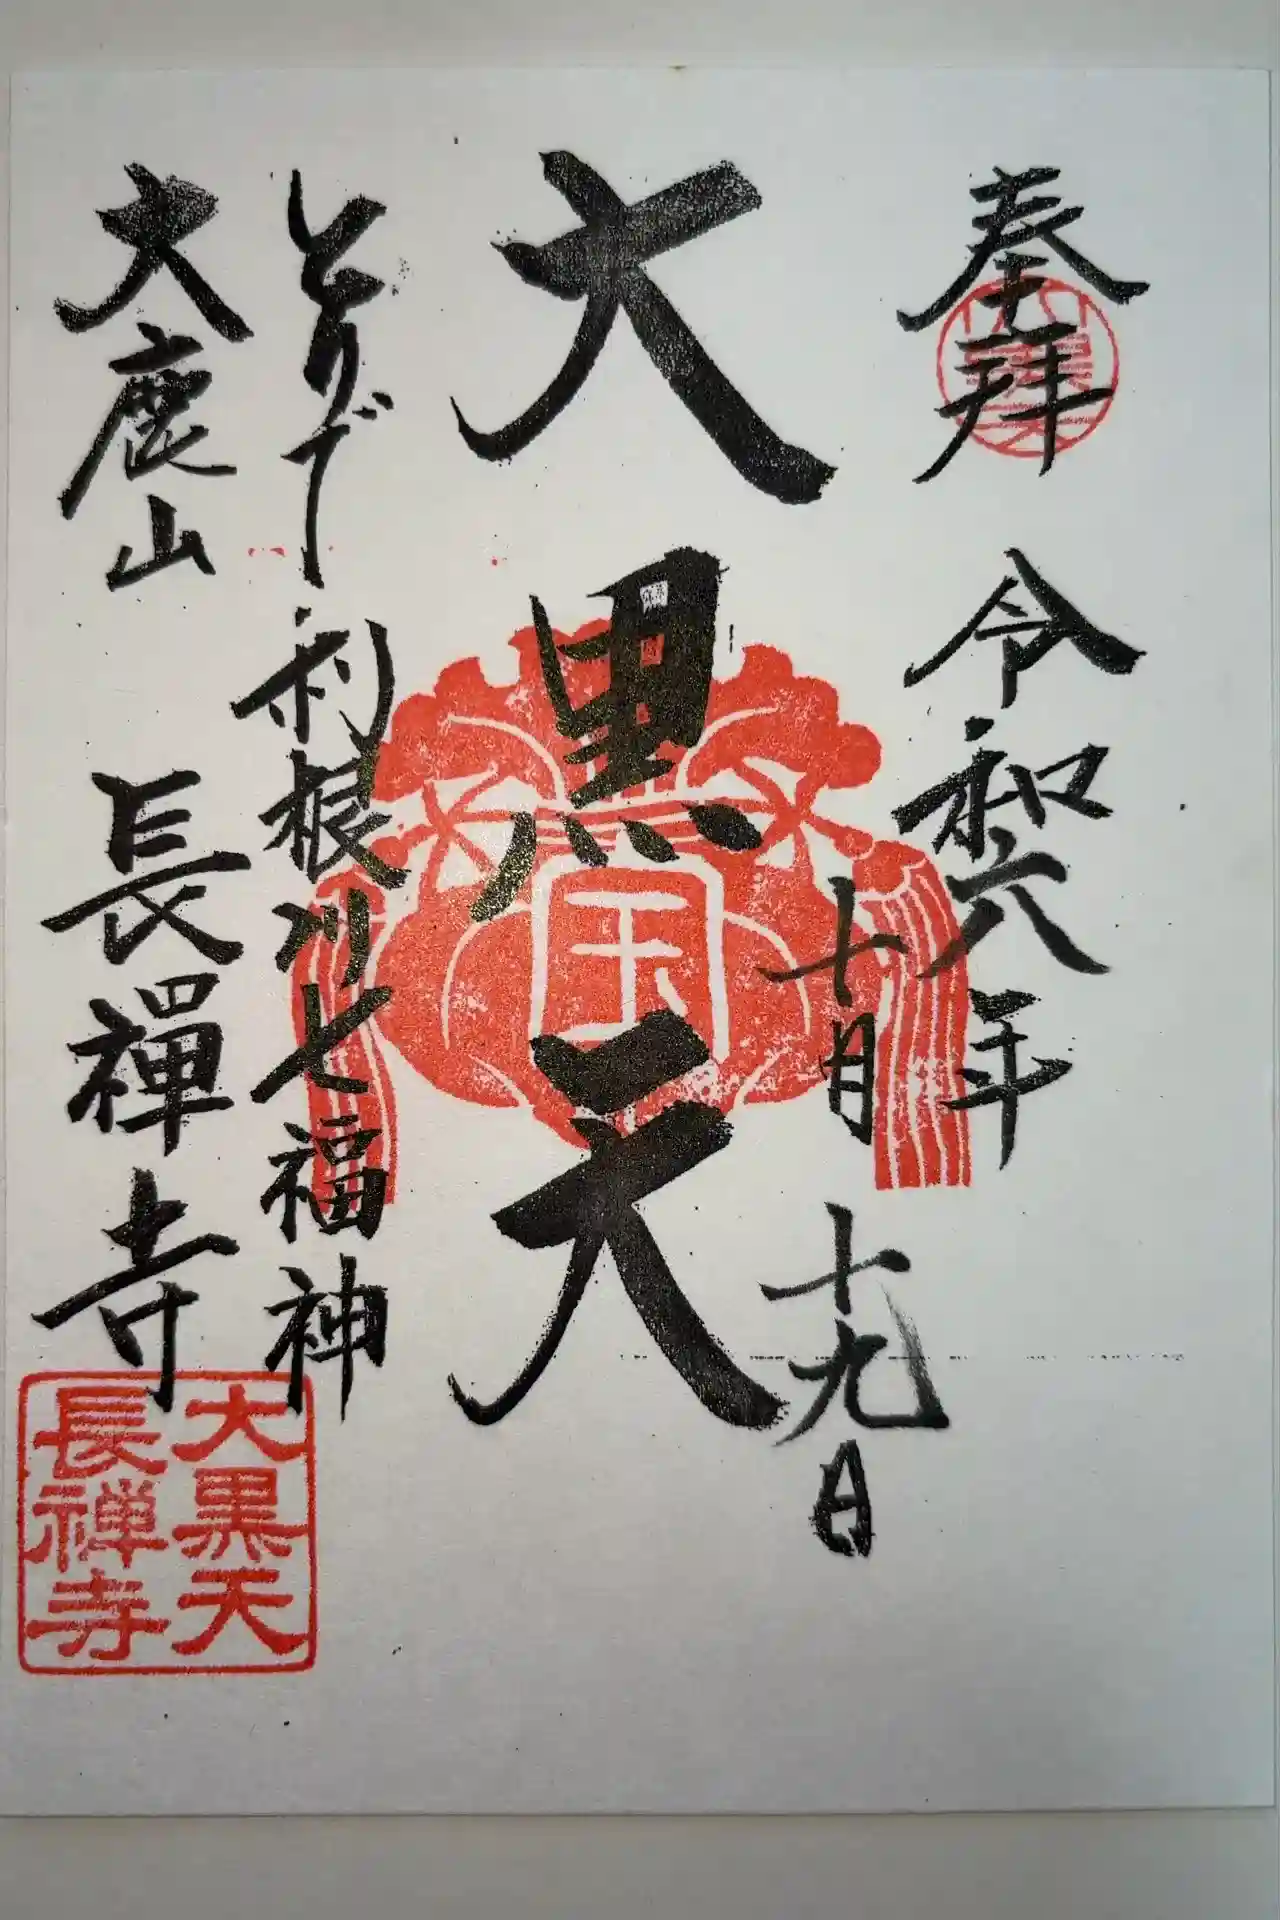 奉拝
令和六年
十月十九日
大黒天
とりで利根川七福神
大鹿山
長禅寺
宝
大黒天
長禅寺